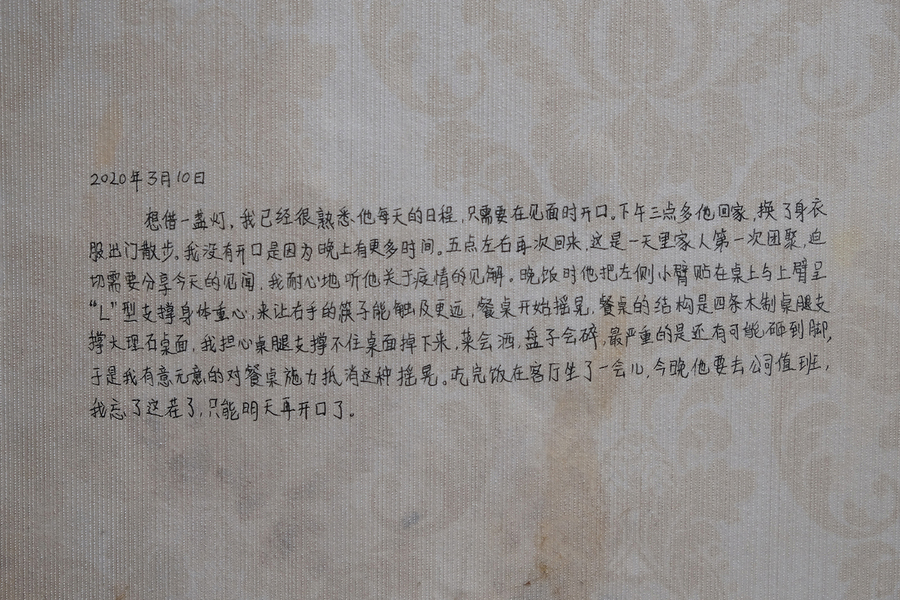 2020年3月10日
想借一盏灯，我已经很熟悉他每天的日程，只需要在见面时开口。下午三点多他回家，换了身衣
服出门散步。我没有开口是因为晚上有更多时间。五点左右再次回来，这是一天里家人第一次团聚，迫
切需要分享今天的见闻，我耐心地听他关于疫情的见解。晚饭时他把左侧小臂贴在桌上与上臂呈
“L”型支撑身体重心，来让右手的筷子能触及更远，餐桌开始摇晃，餐桌的结构是四条木制桌腿支
撑大理石桌面，我担心桌腿支撑不住桌面掉下来，菜会洒，盘子会碎，最严重的是还有可能砸到脚，
于是我有意无意的对餐桌施力抵消这种摇晃。吃完饭在客厅坐了一会儿，今晚他要去公司值班，
我忘了这茬了，只能明天再开口了。